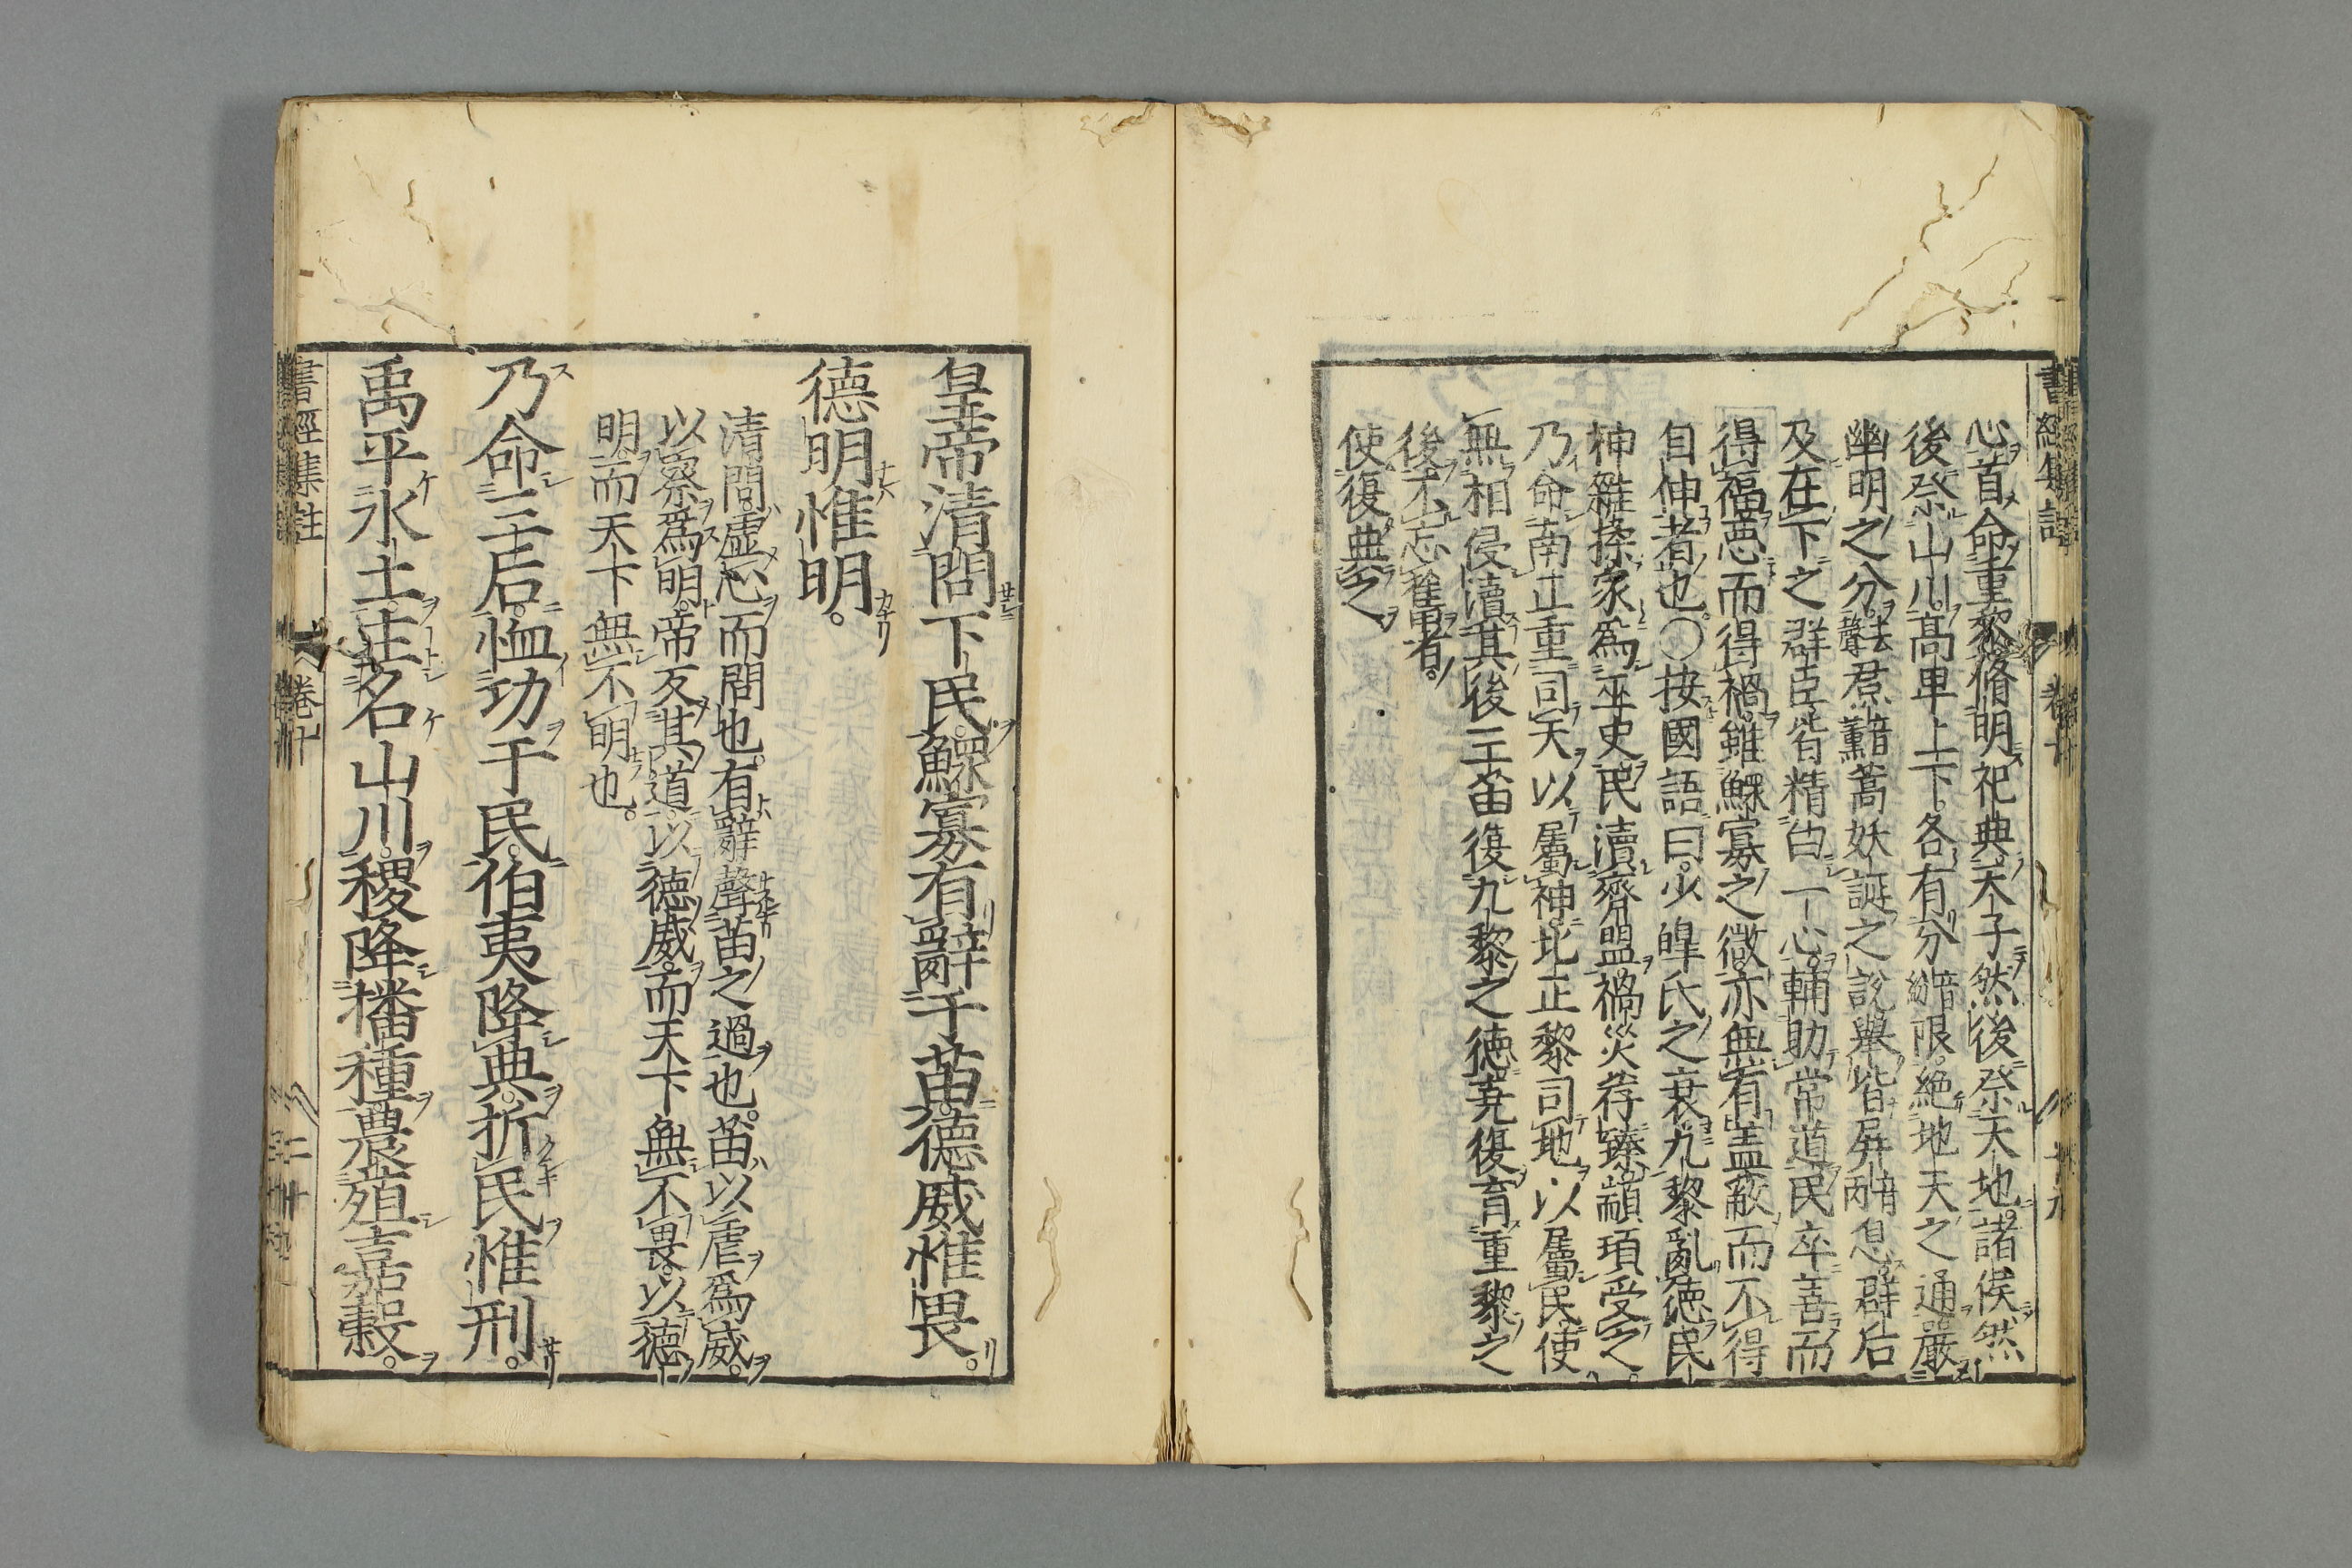 心首命重黎脩明祀典天子然後祭天地諸侯然
後祭山川高卑上下各有分限絶地天之通嚴
幽明之分焄蒿妖誕之說舉皆屏息群后
及在下之群臣皆精白一心輔助常道民卒善而
得福惡而得禍雖鰥寡之微亦無有盖蔽而不得
自伸者也○按國語曰少皥氏之衰九黎亂德民
神雜揉家爲巫史民瀆齊盟禍災荐臻顓頊受之
乃命南正重司天以屬神北正黎司地以屬民使
無相侵瀆其後三苗復九黎之德堯復育重黎之
後不忘舊者
使復典之
皇帝清問下民鰥寡有辭于苗德威惟畏
德明惟明
清問虛心而問也有辭聲苗之過也苗以虐爲威
以察爲明帝反其道以德威而天下無不畏以德
明而天下無不明也
乃命三后恤功于民伯夷降典折民惟刑
禹平水土主名山川稷降播種農殖嘉穀
書經集註 卷十